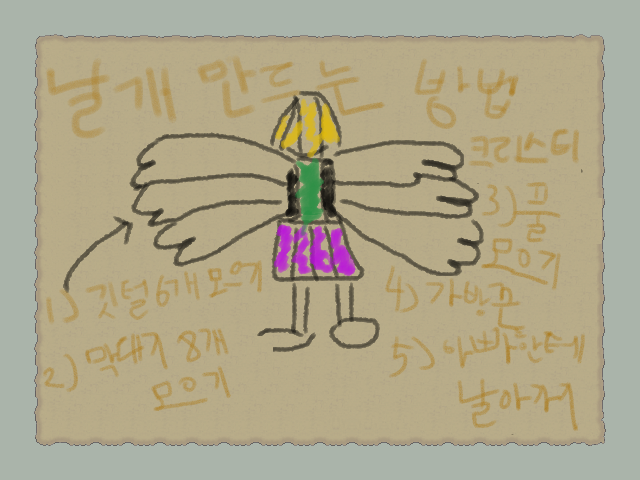 날개 만드는 방법
크리스티
1) 깃털 6개 모으기
2) 막대기 8개
모으기
3) 풀
모으기
4) 가방끈
5) 아빠한테
날아가기